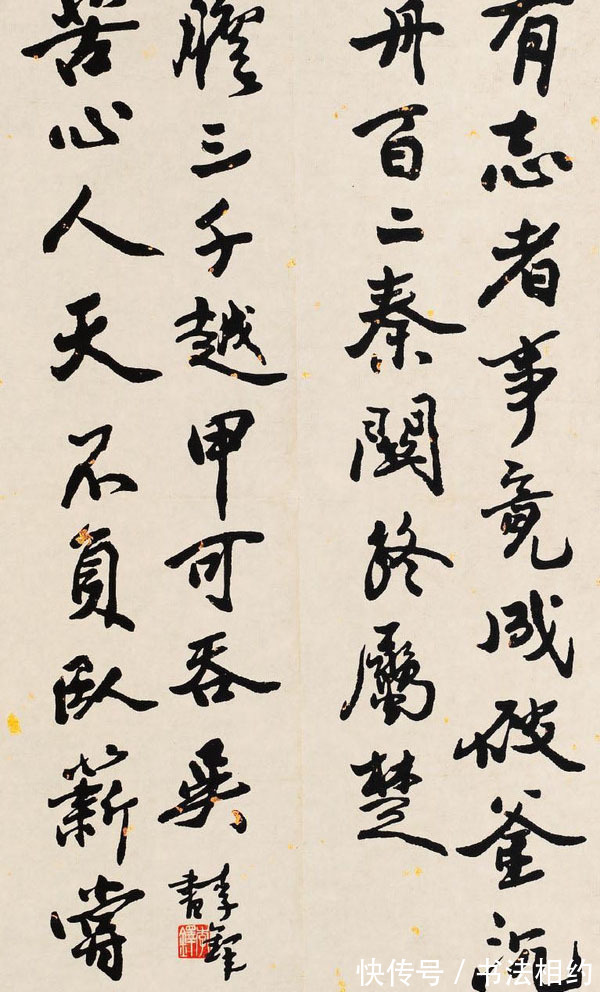 有志者事竟成破釜沉
舟百二秦關終屬楚
苦心人天不負臥薪嘗
膽三千越甲可吞吳
李鐸
書
李鐸
快传号 / 书法相约